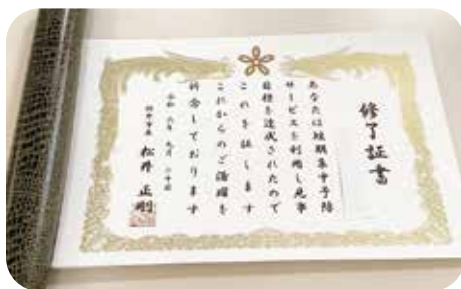 修了証書
あなたは短期集中予防
サービスを利用し見事
目標を達成されたので
これを証します
これからのご活躍を
祈念しております
令和 六年 九月 二十日
松井 正剛